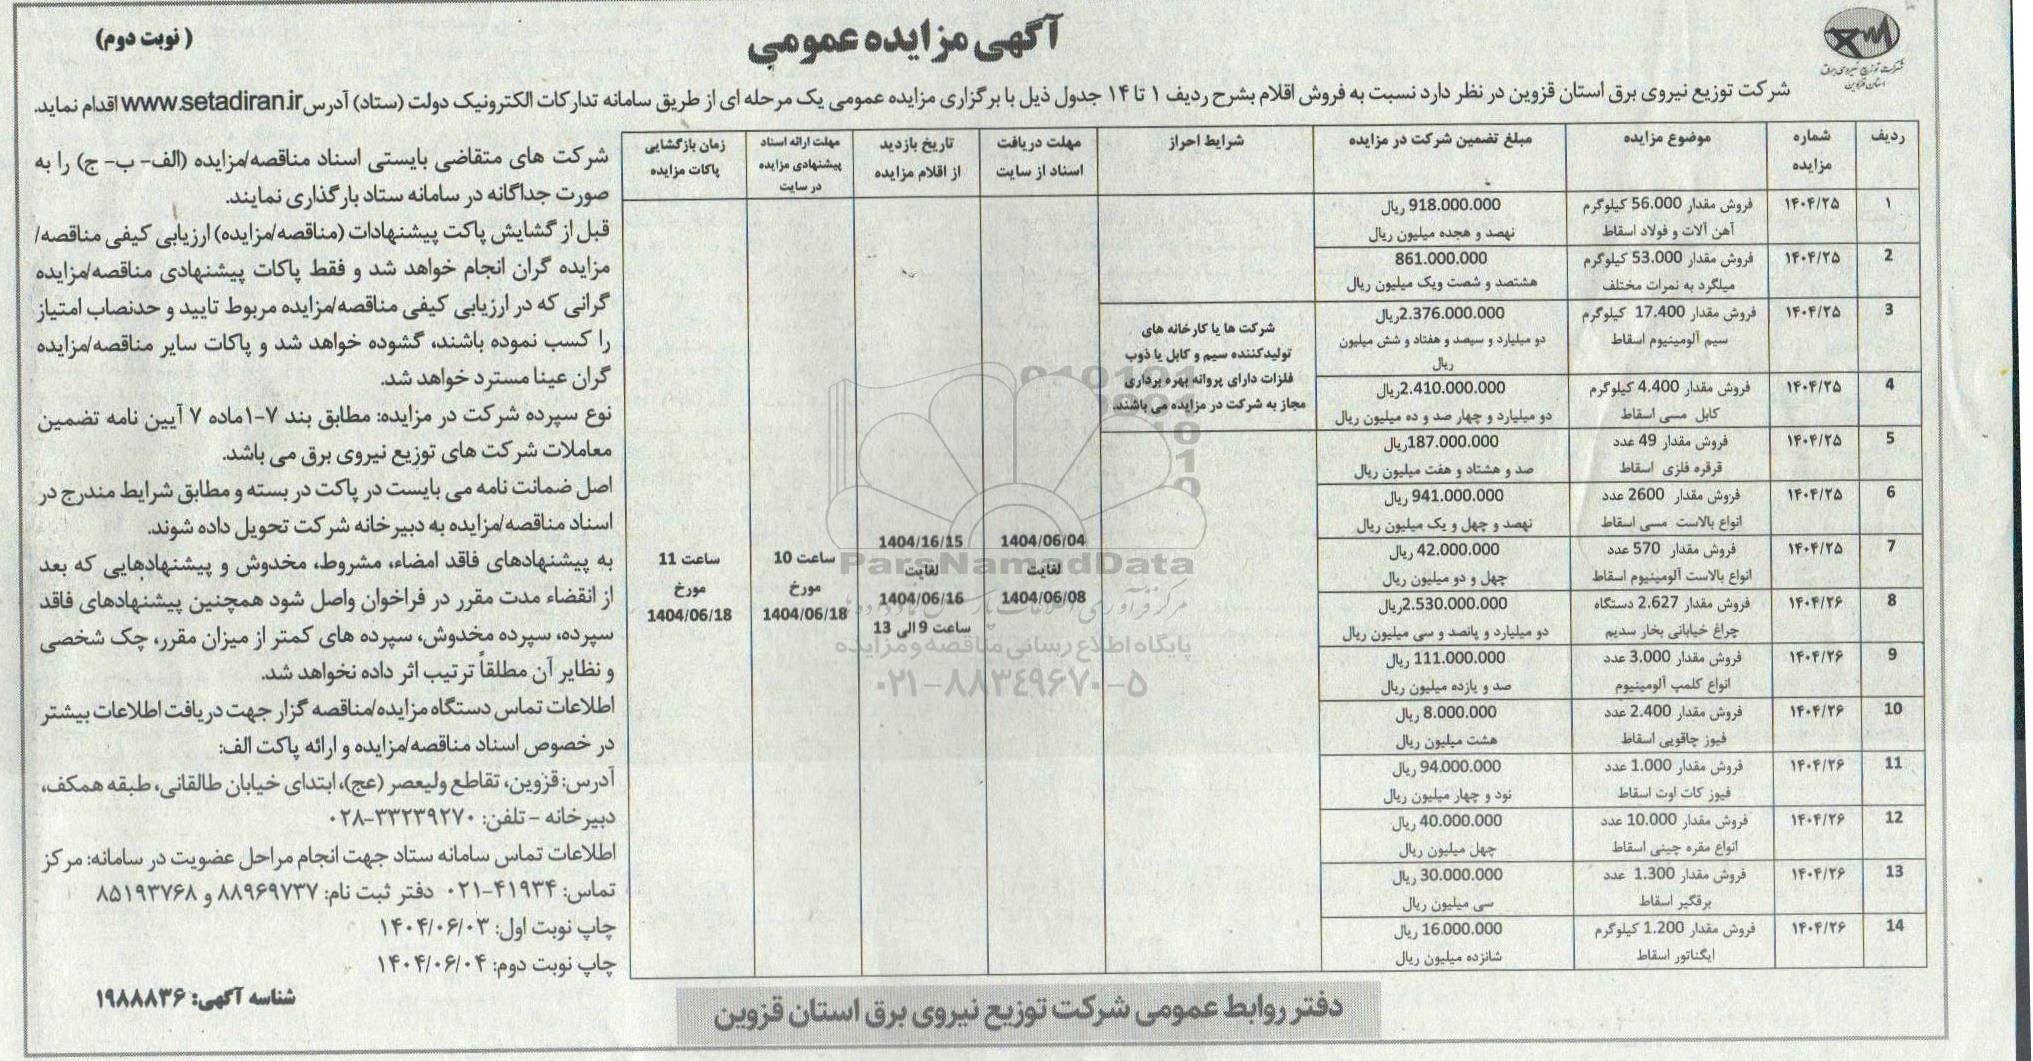 آگهی مزایده عمومی
( نوبت دوم)
شرکت توزیع نیروی برق
استان قزوین
شرکت توزیع نیروی برق استان قزوین در نظر دارد نسبت به فروش اقلام بشرح ردیف ۱ تا ۱۴ جدول ذیل با برگزاری مزایده عمومی یک مرحله ای از طریق سامانه تدارکات الکترونیک دولت (ستاد) آدرس www.setadiran.ir اقدام نماید.
ردیف | شماره مزایده | موضوع مزایده | مبلغ تضمین شرکت در مزایده | شرایط احراز | مهلت دریافت اسناد از سایت | تاریخ بازدید از اقلام مزایده | مهلت ارائه اسناد پیشنهادی مزایده در سایت | زمان بازگشایی پاکات مزایده
۱ | ۱۴۰۴/۲۵ | فروش مقدار 56.000 کیلوگرم | 918.000.000 ریال
آهن آلات و فولاد اسقاط | نهصد و هجده میلیون ریال
2 | ۱۴۰۴/۲۵ | فروش مقدار 53.000 کیلوگرم | 861.000.000
میلگرد به نمرات مختلف | هشتصد و شصت ویک میلیون ریال
3 | ۱۴۰۴/۲۵ | فروش مقدار 17.400 کیلوگرم | 2.376.000.000ریال
سیم آلومینیوم اسقاط | دو میلیارد و سیصد و هفتاد و شش میلیون
ریال
4 | ۱۴۰۴/۲۵ | فروش مقدار 4.400 کیلوگرم | 2.410.000.000ریال
کابل مسی اسقاط | دو میلیارد و چهار صد و ده میلیون ریال
5 | ۱۴۰۴/۲۵ | فروش مقدار 49 عدد | 187.000.000ریال
قرقره فلزی اسقاط | صد و هشتاد و هفت میلیون ریال
6 | ۱۴۰۴/۲۵ | فروش مقدار 2600 عدد | 941.000.000 ریال
انواع بالاست مسی اسقاط | نهصد و چهل و یک میلیون ریال
7 | ۱۴۰۴/۲۵ | فروش مقدار 570 عدد | 42.000.000 ریال
انواع بالاست آلومینیوم اسقاط | چهل و دو میلیون ریال
8 | ۱۴۰۴/۲۶ | فروش مقدار 2.627 دستگاه | 2.530.000.000ریال
چراغ خیابانی بخار سدیم | دو میلیارد و پانصد و سی میلیون ریال
9 | ۱۴۰۴/۲۶ | فروش مقدار 3.000 عدد | 111.000.000 ریال
انواع کلمپ آلومینیوم | صد و یازده میلیون ریال
10 | ۱۴۰۴/۲۶ | فروش مقدار 2.400 عدد | 8.000.000 ریال
فیوز چاقویی اسقاط | هشت میلیون ریال
11 | ۱۴۰۴/۲۶ | فروش مقدار 1.000 عدد | 94.000.000 ریال
فیوز کات اوت اسقاط | نود و چهار میلیون ریال
12 | ۱۴۰۴/۲۶ | فروش مقدار 10.000 عدد | 40.000.000 ریال
انواع مقره چینی اسقاط | چهل میلیون ریال
13 | ۱۴۰۴/۲۶ | فروش مقدار 1.300 عدد | 30.000.000 ریال
برقگیر اسقاط | سی میلیون ریال
14 | ۱۴۰۴/۲۶ | فروش مقدار 1.200 کیلوگرم | 16.000.000 ریال
ایگناتور اسقاط | شانزده میلیون ریال
شرکت ها یا کارخانه های
تولیدکننده سیم و کابل یا ذوب
فلزات دارای پروانه بهره برداری
مجاز به شرکت در مزایده می باشند.
1404/06/04
لغایت
1404/06/08
1404/16/15
لغایت
1404/06/16
ساعت 9 الی 13
ساعت 10
مورخ
1404/06/18
ساعت 11
مورخ
1404/06/18
شرکت های متقاضی بایستی اسناد مناقصه/مزایده (الف- ب- ج) را به
صورت جداگانه در سامانه ستاد بارگذاری نمایند.
قبل از گشایش پاکت پیشنهادات (مناقصه/مزایده) ارزیابی کیفی مناقصه/
مزایده گران انجام خواهد شد و فقط پاکات پیشنهادی مناقصه/مزایده
گرانی که در ارزیابی کیفی مناقصه/مزایده مربوط تایید و حدنصاب امتیاز
را کسب نموده باشند، گشوده خواهد شد و پاکات سایر مناقصه/مزایده
گران عینا مسترد خواهد شد.
نوع سپرده شرکت در مزایده: مطابق بند ۷-۱ماده ۷ آیین نامه تضمین
معاملات شرکت های توزیع نیروی برق می باشد.
اصل ضمانت نامه می بایست در پاکت در بسته و مطابق شرایط مندرج در
اسناد مناقصه/مزایده به دبیرخانه شرکت تحویل داده شوند.
به پیشنهادهای فاقد امضاء، مشروط، مخدوش و پیشنهادهایی که بعد
از انقضاء مدت مقرر در فراخوان واصل شود همچنین پیشنهادهای فاقد
سپرده، سپرده مخدوش، سپرده های کمتر از میزان مقرر، چک شخصی
و نظایر آن مطلقاً ترتیب اثر داده نخواهد شد.
اطلاعات تماس دستگاه مزایده/مناقصه گزار جهت دریافت اطلاعات بیشتر
در خصوص اسناد مناقصه/مزایده و ارائه پاکت الف:
آدرس: قزوین، تقاطع ولیعصر (عج)، ابتدای خیابان طالقانی، طبقه همکف،
دبیرخانه - تلفن: ۳۳۲۳۹۲۷۰-۰۲۸
اطلاعات تماس سامانه ستاد جهت انجام مراحل عضویت در سامانه: مرکز
تماس: ۴۱۹۳۴-۰۲۱ دفتر ثبت نام: ۸۸۹۶۹۷۳۷ و ۸۵۱۹۳۷۶۸
چاپ نوبت اول: ۱۴۰۴/۰۶/۰۳
چاپ نوبت دوم: ۱۴۰۴/۰۶/۰۴
شناسه آگهی: ۱۹۸۸۸۳۶
دفتر روابط عمومی شرکت توزیع نیروی برق استان قزوین
ParsNamadData
پایگاه اطلاع رسانی مناقصه و مزایده
۰۲۱-۸۸۳۴۹۶۷۰-۵